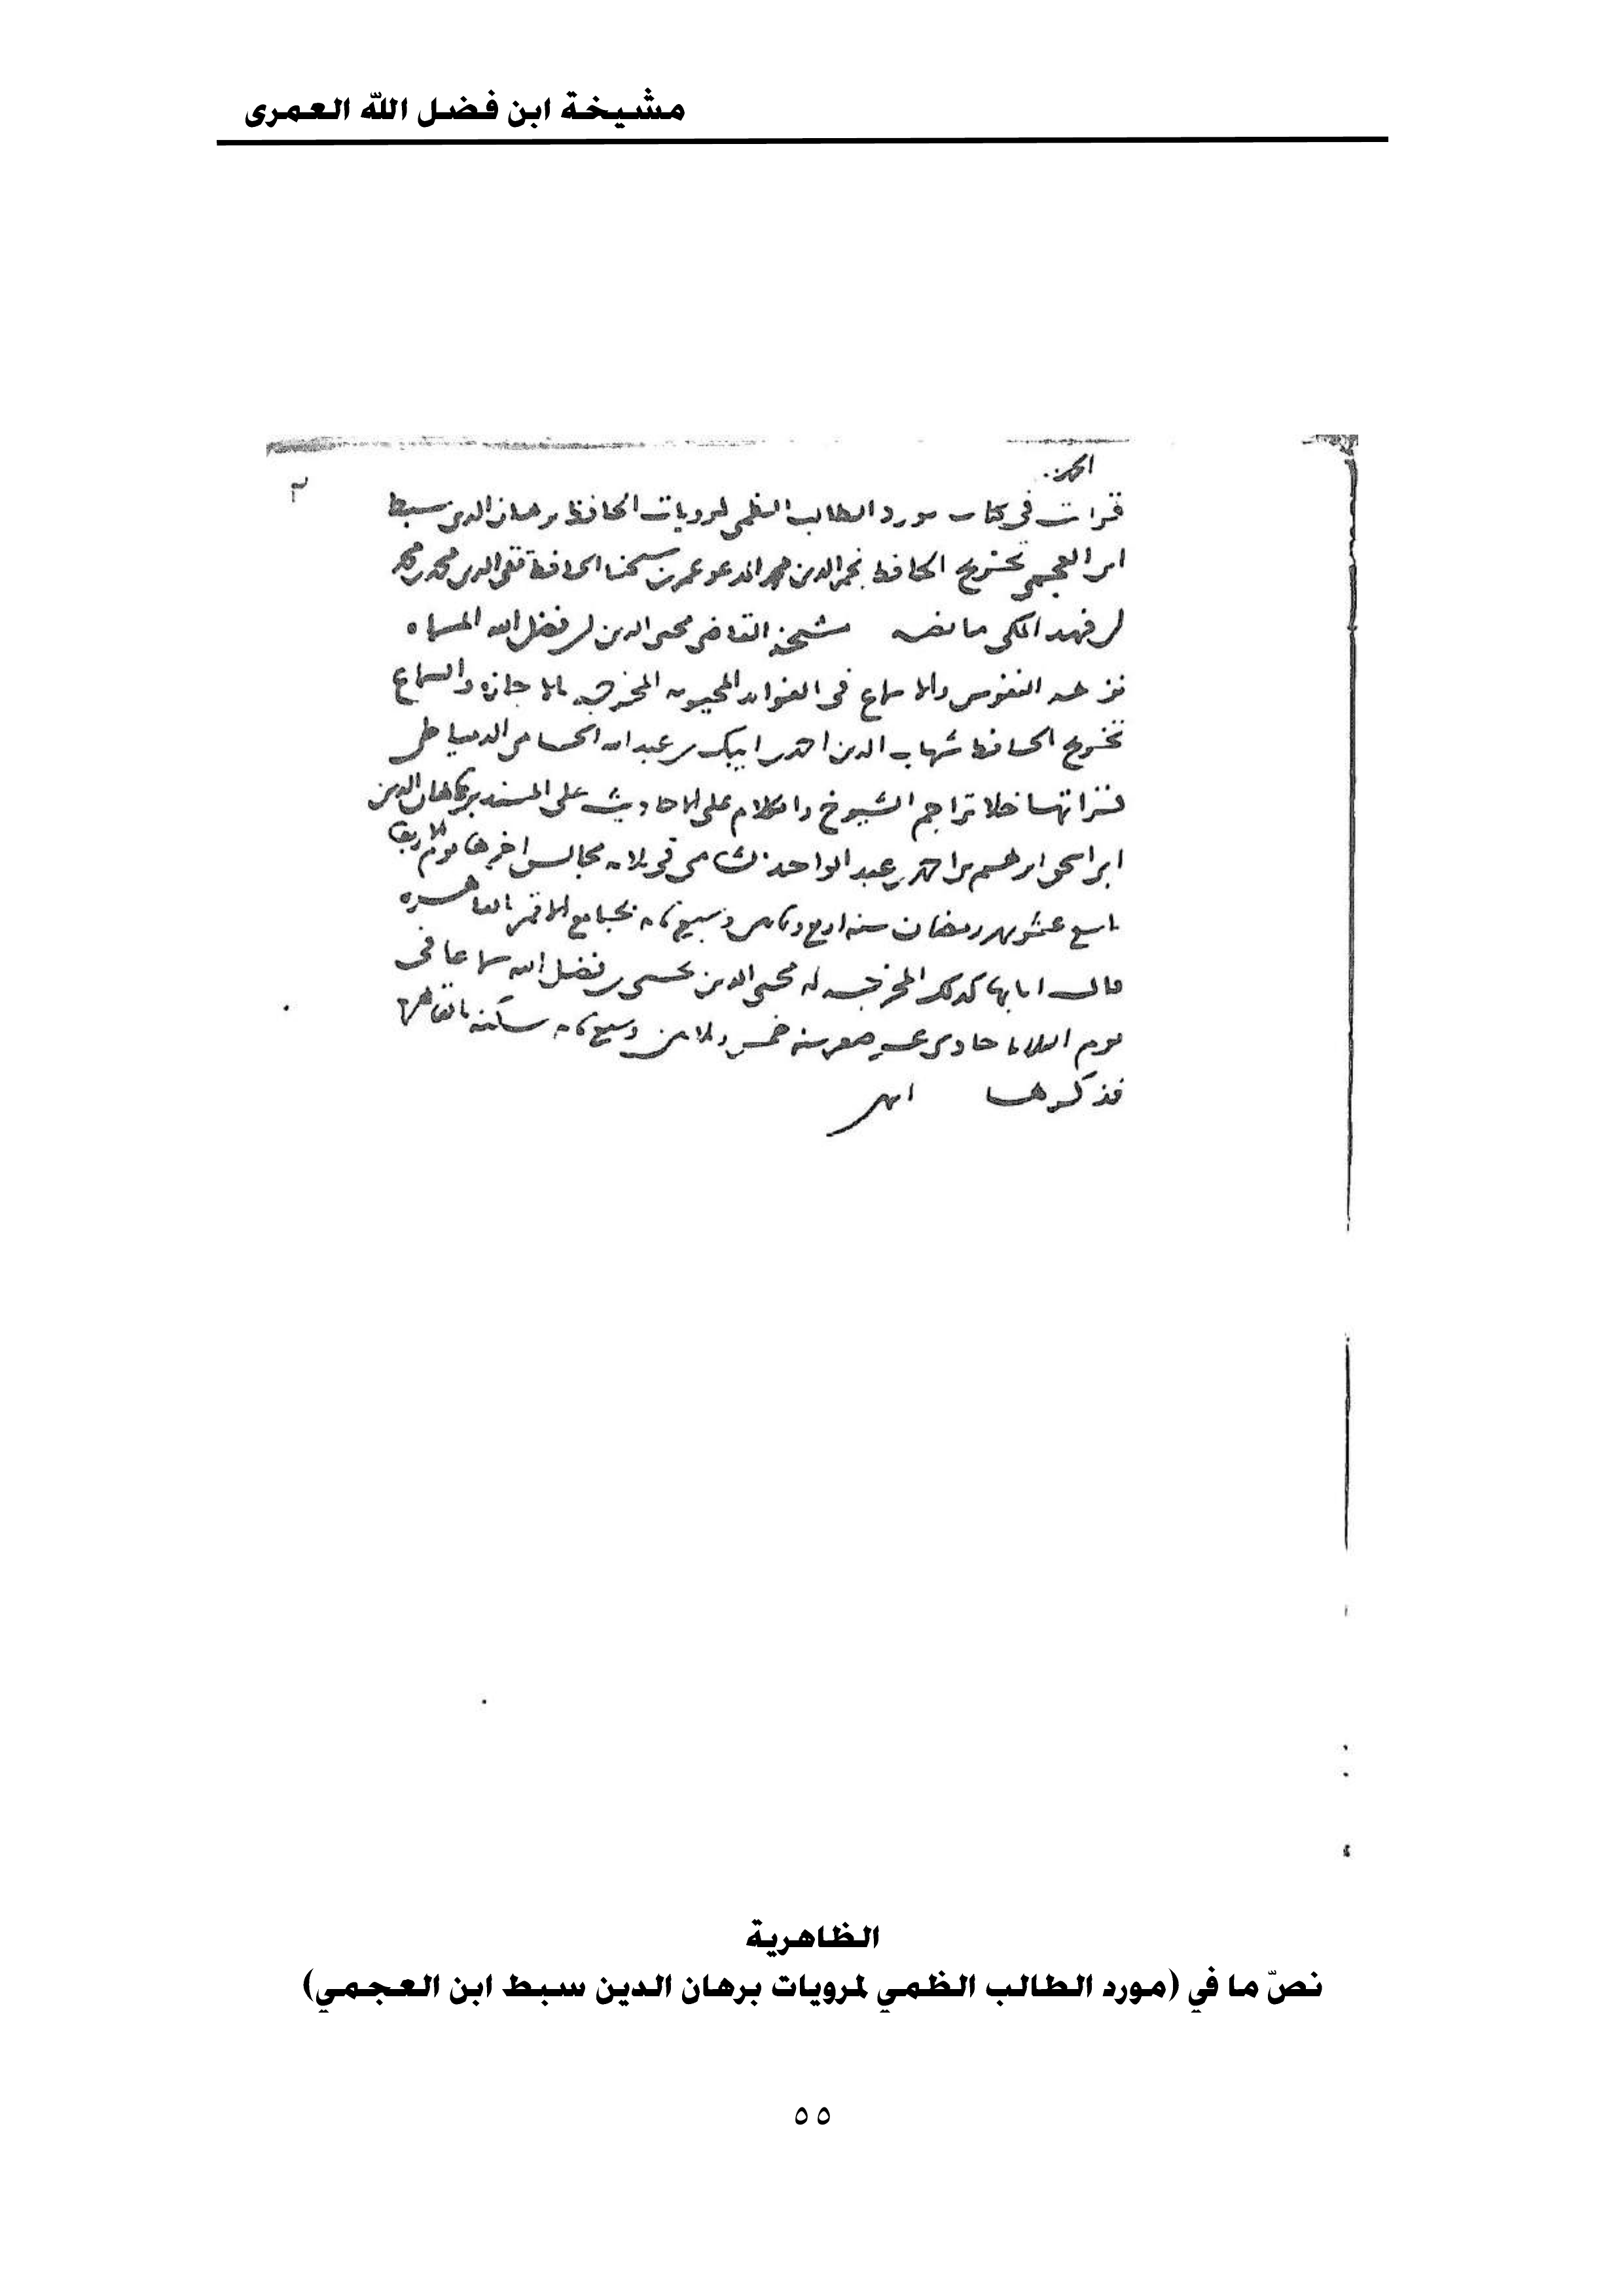 مشيخة ابن فضل الله العمرى
الحمد لله
قرات في كتاب مورد الطالب الظمي لمرويات الحافظ برهان الدين سبط
ابن العجمي تخريج الحافظ نجم الدين محمد المدعو عمر بن شيخنا الحافظ تقي الدين محمد بن محمد
بن فهد المكي ما نصه مشيخة القاضي محيى الدين بن فضل الله المسماه
نزهة النفوس والاسماع في الفوائد المحيوية المخرجة بالاجازه والسماع
تخريج الحافظ شهاب الدين احمد بن ايبك بن عبد الله الحسامي الدمياطي
قراتها خلا تراجم الشيوخ والكلام على الاحاديث على المسند برهان الدين
ابي اسحق ابرهيم بن احمد بن عبد الواحد الشامي في ثلاثة مجالس اخرها يوم الاربعا
تاسع عشر شهر رمضان سنة اربع وثمانين وسبعمائة بجامع الاقمر بالقاهرة
قال انا بها كذلك المخرجة له محيي الدين يحيى بن فضل الله سماعا في
يوم الثلاثا حادي عشر صفر سنة خمس وثلاثين وسبعمائة بسكنه بالقاهرة
فذكرها انتهى
الظاهرية
نصّ ما في (مورد الطالب الظمي لمرويات برهان الدين سبط ابن العجمي)
٥٥